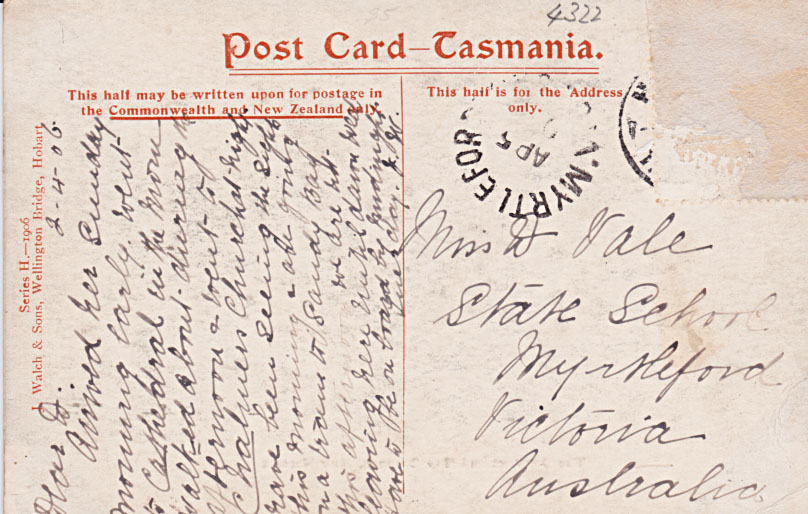 4322
Post Card–Tasmania.
This half may be written upon for postage in
the Commonwealth and New Zealand only.
This half is for the Address
only.
MYRTLEFOR
AP 5
Series H.—1906
J. Walch & Sons, Wellington Bridge, Hobart.
2-4-06
Dear D.
Arrived here Sunday
morning early. Went
to Cathedral in the morn
walked about during the
afternoon & went to
Chalmers Church at night
have been seeing the sights
this morning & are going
on a tram to Sandy Bay
this afternoon we are
leaving here
have to be on board by midnight
Miss D Vale
State School
Myrtleford
Victoria
Australia